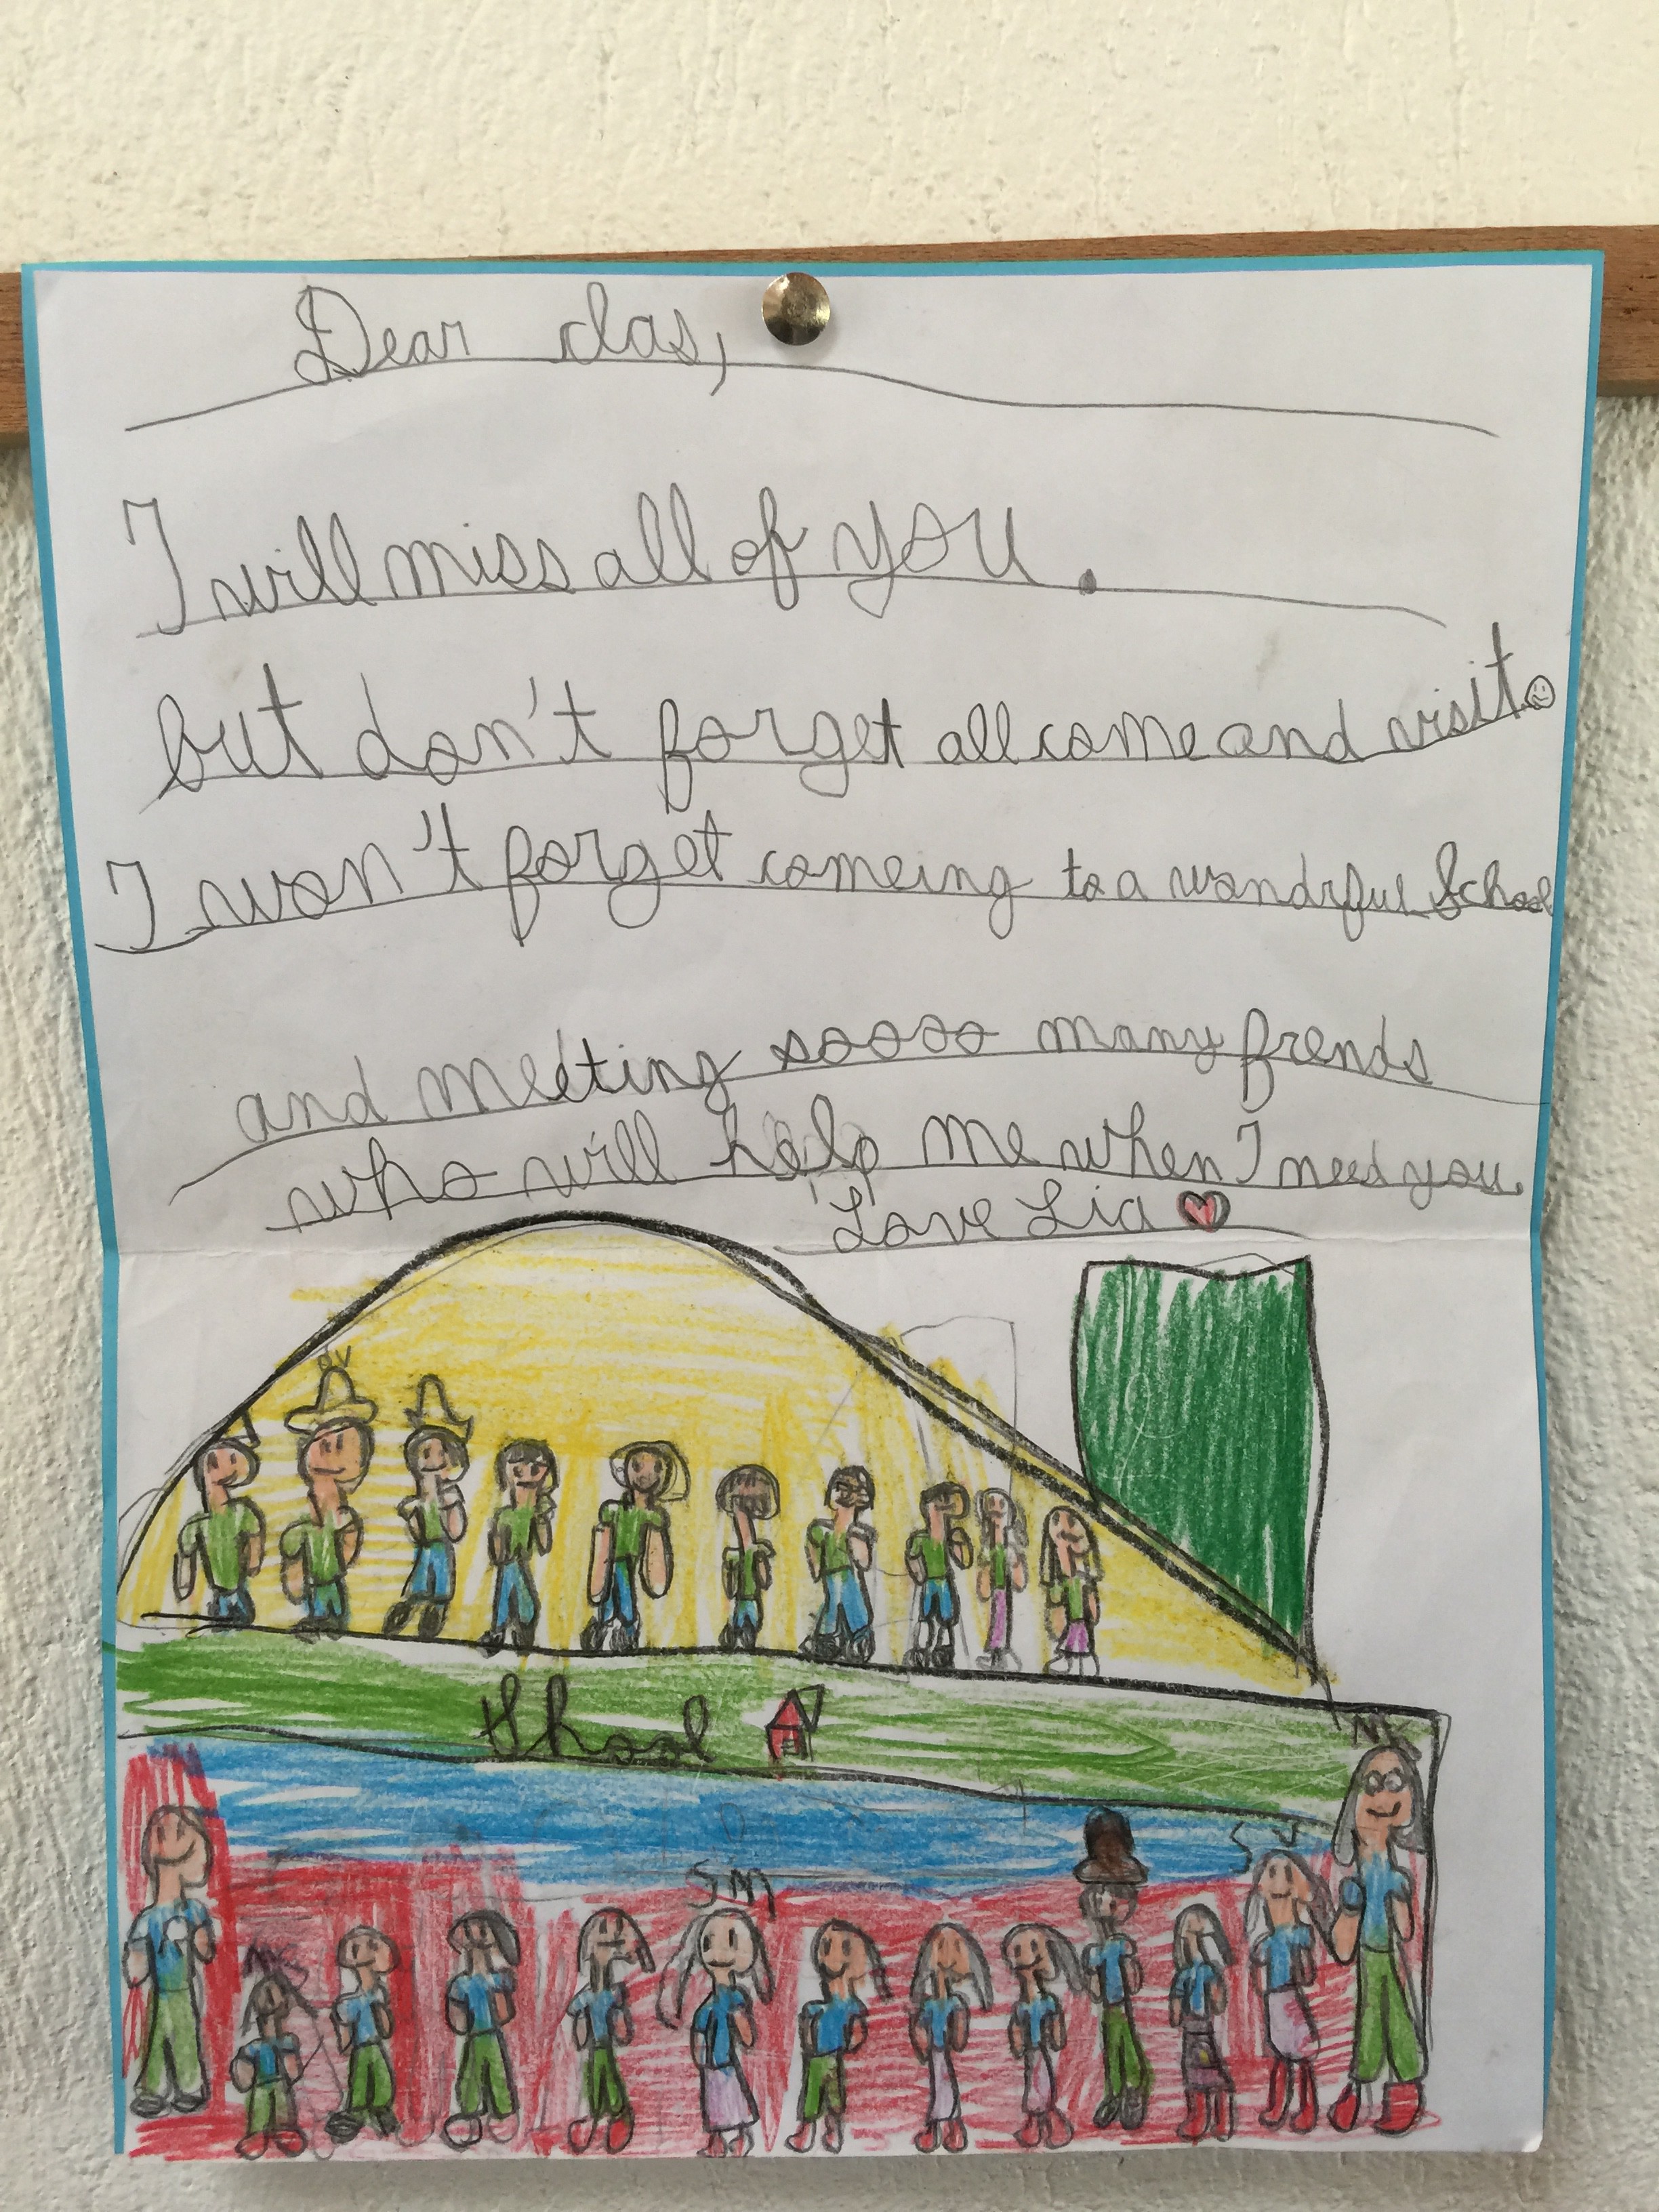 Dear clas,
I will miss all of you.
but don't forget all come and visit.
I won't forget comeing to a wondrful School
and meeting soooo many frends
who will help me when I need you.
Love Lia
SM